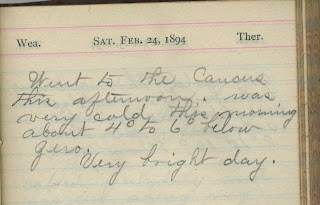 Wea. SAT. FEB. 24, 1894 Ther.
Went to the Caucus
this afternoon. was
very cold this morning
about 4° to 6° below
zero.
Very bright day.